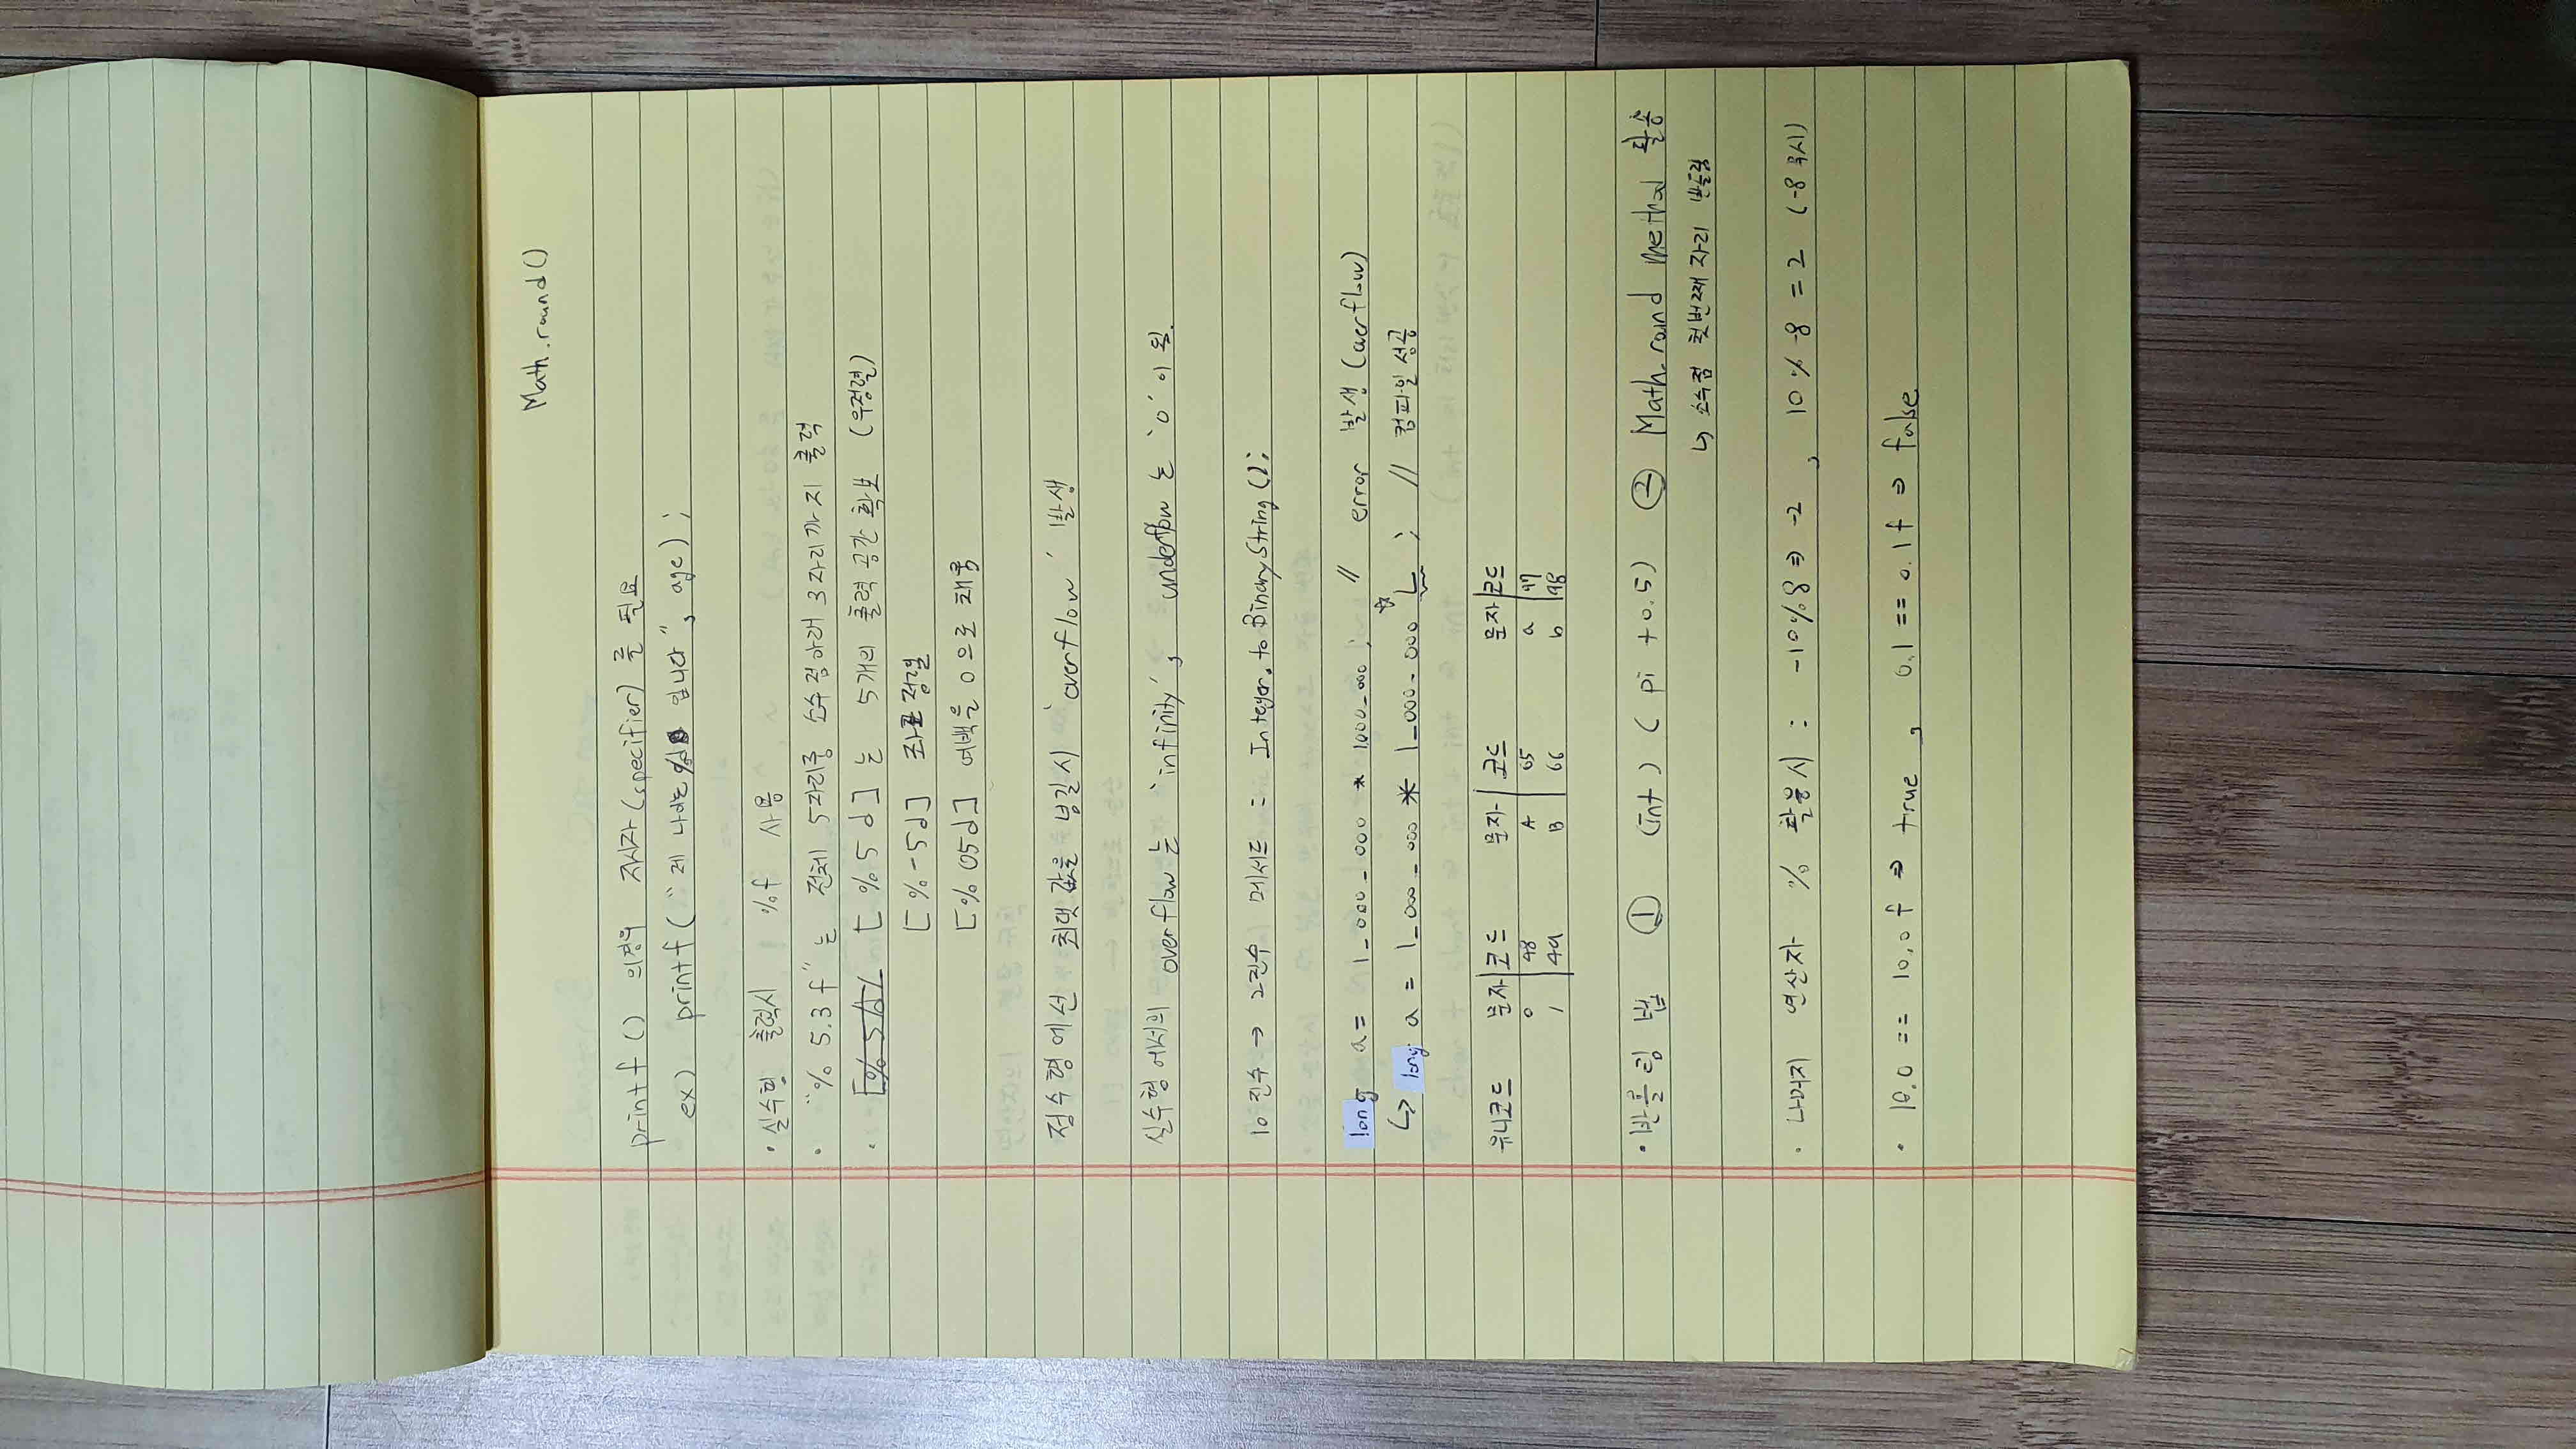 Math.round()
printf () 의경우 지시자(specifier) 를 필요
ex) printf( "제 나이는 %d 입니다", age) ;
· 실수형 출력시 %f 사용
· "% 5.3 f" 는 전체 5자리중 소수점아래 3자리까지 출력
· [% 5d] [ % 5 d ] 는 5개의 출력 공간 확보 (우정렬)
[ % -5d ] 좌표정렬
[ % 05d ] 여백을 0 으로 채움
정수형에선 최댓값을 넘길시 'overflow' 발생
실수형에서의 overflow는 'infinity', underflow 는 '0' 이 됨.
10진수 → 2진수 메서드 = Integer.toBinaryString();
long a = 1_000_000 * 1000_000 ; // error 발생 (overflow)
↳ long a = 1_000_000 * 1_000_000 L ; // 컴파일 성공 ☆
유니코드 문자 코드 문자 코드 문자 코드
0 48 A 65 a 97
1 49 B 66 b 98
· 반올림 법 ① (int) ( pi + 0.5) ② Math.round method 활용
↳ 소수점 첫번째 자리 반올림
· 나머지 연산자 % 활용시 : -10%8 ⇒ -2 , 10 % -8 = 2 (-8 무시)
· 10.0 == 10.0 f ⇒ true , 0.1 == 0.1f ⇒ false